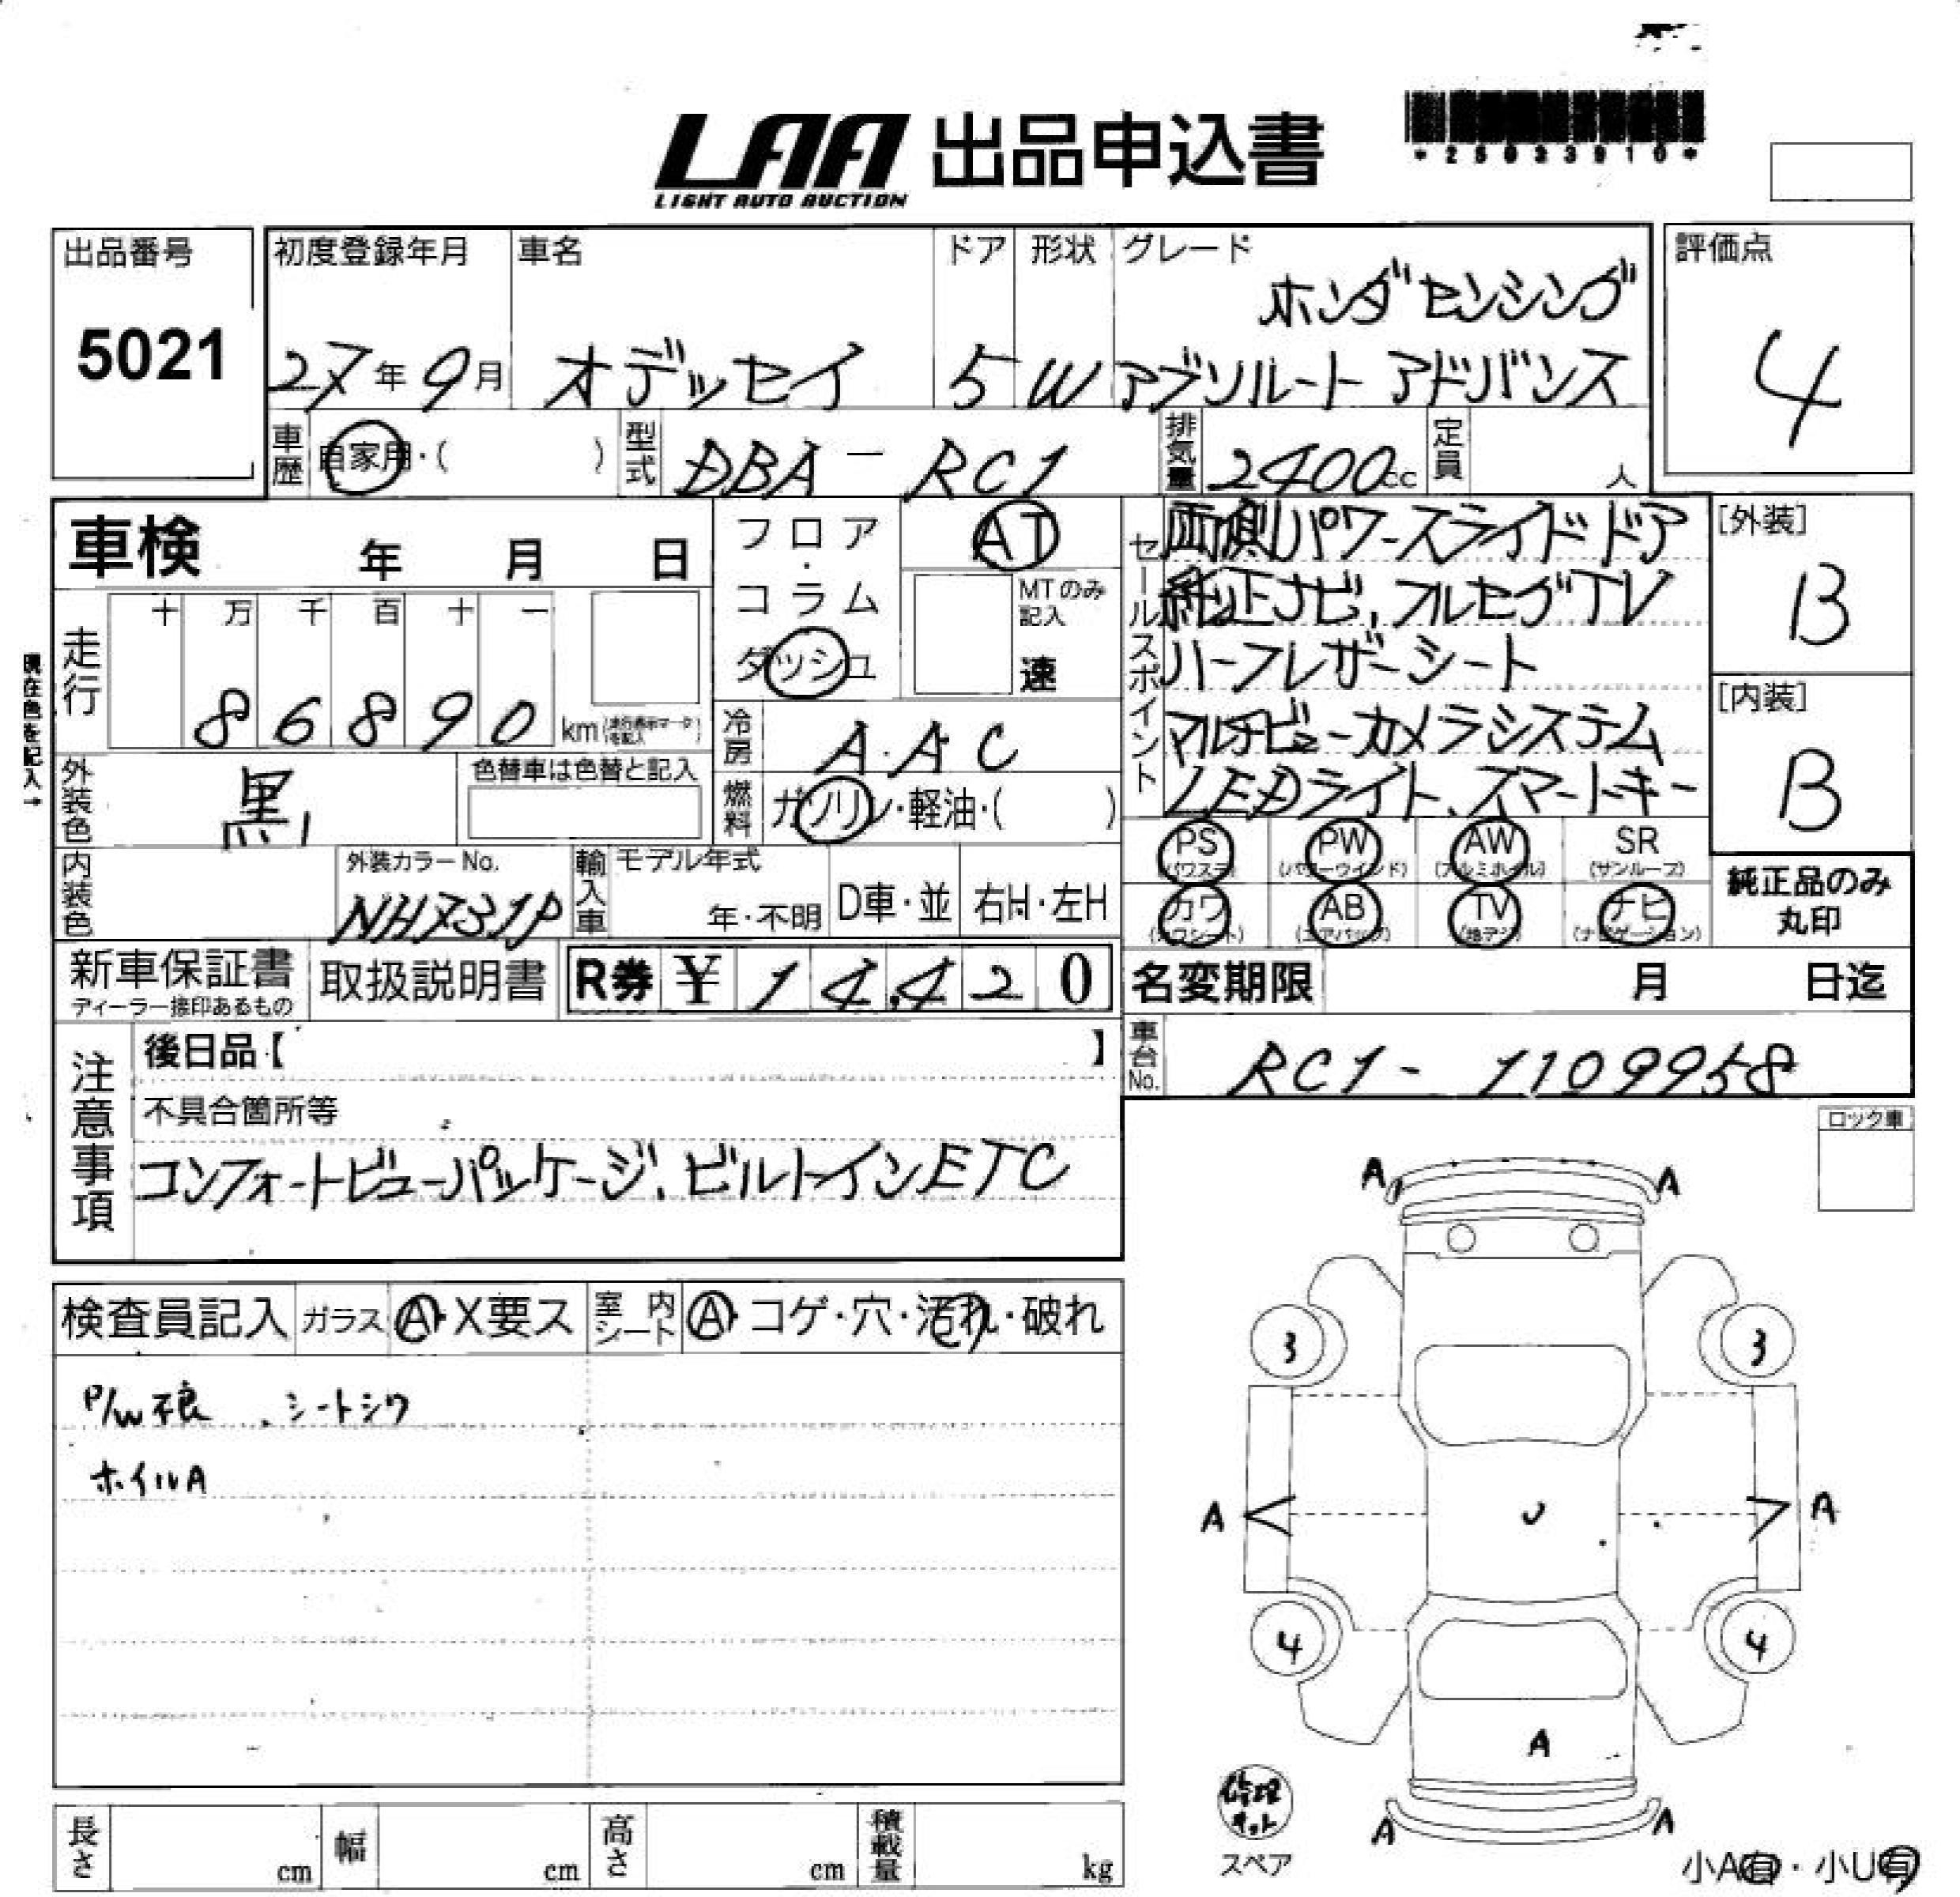 LAA 出品申込書
LIGHT AUTO AUCTION
*25033910*
出品番号
5021
初度登録年月 車名 ドア 形状 グレード
ホンダセンシング
27年9月 オデッセイ 5 W アブソルート アドバンス
評価点
4
車歴 自家用・( ) 型式 DBA-RC1 排気量 2400cc 定員 人
車検 年 月 日
フロア・コラム ダッシュ
AT
MTのみ記入
速
セールスポイント
両側パワースライドドア
純正ナビ、フルセグTV
ハーフレザーシート
マルチビューカメラシステム
LEDライト、スマートキー
[外装]
B
[内装]
B
現在色を記入→
走行 十 万 千 百 十 一
86890 km (走行表示マークを記入)
冷房 A.A.C
燃料 ガソリン・軽油・( )
外装色 黒 色替車は色替と記入
内装色 外装カラーNo. NH731P 輸入車 モデル年式 年・不明 D車・並 右H・左H
PS (パワステ) PW (パワーウインド) AW (アルミホイル) SR (サンルーフ)
カワ (カワシート) AB (エアバッグ) TV (地デジ) ナビ (ナビゲーション)
純正品のみ
丸印
新車保証書 取扱説明書 R券 ¥ 14,420
ディーラー捺印あるもの
名変期限 月 日迄
車台No. RC1-1109958
注意事項
後日品【 】
不具合箇所等
コンフォートビューパッケージ、ビルトインETC
ロック車
検査員記入 ガラス A・X要ス 室内シート A・コゲ・穴・汚れ・破れ
P/W不良 、シートシワ
ホイルA
A A
3 3
A A
U
4 4
A
A A
修理キット
スペア
小A有・小U有
長さ cm 幅 cm 高さ cm 積載量 kg